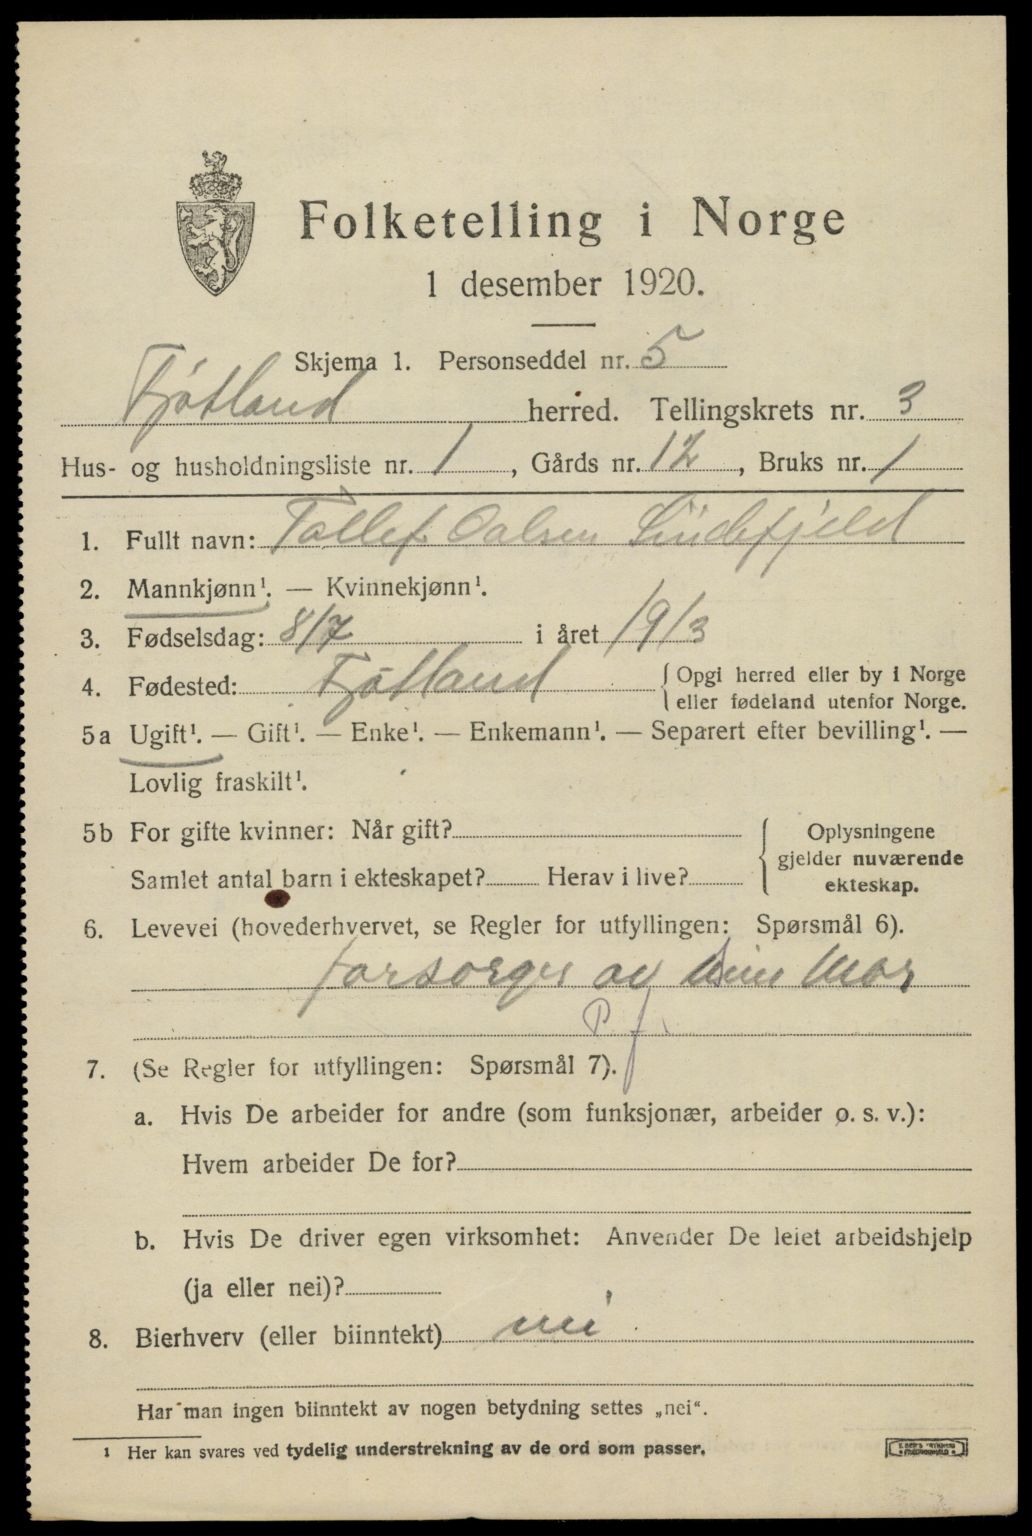 Folketelling i Norge
1 desember 1920.
Skjema 1. Personseddel nr. 5
Fjotland herred. Tellingskrets nr. 3
Hus- og husholdningsliste nr. 1, Gårds nr. 12, Bruks nr. 1
1. Fullt navn: Tollef Oalsen Sindefjeld
2. Mannkjønn¹. — Kvinnekjønn¹.
3. Fødselsdag: 8/7 i året 1913
4. Fødested: Fjotland { Opgi herred eller by i Norge
eller fødeland utenfor Norge.
5a Ugift¹. — Gift¹. — Enke¹. — Enkemann¹. — Separert efter bevilling¹. —
Lovlig fraskilt¹.
5b For gifte kvinner: Når gift? { Oplysningene
gjelder nuværende
Samlet antal barn i ekteskapet? Herav i live? ekteskap.
6. Levevei (hovederhvervet, se Regler for utfyllingen: Spørsmål 6).
forsorges av sin Mor
P f.
7. (Se Regler for utfyllingen: Spørsmål 7).
a. Hvis De arbeider for andre (som funksjonær, arbeider o. s. v.):
Hvem arbeider De for?
b. Hvis De driver egen virksomhet: Anvender De leiet arbeidshjelp
(ja eller nei)?
8. Bierhverv (eller biinntekt) nei
Har man ingen biinntekt av nogen betydning settes „nei“.
¹ Her kan svares ved tydelig understrekning av de ord som passer.